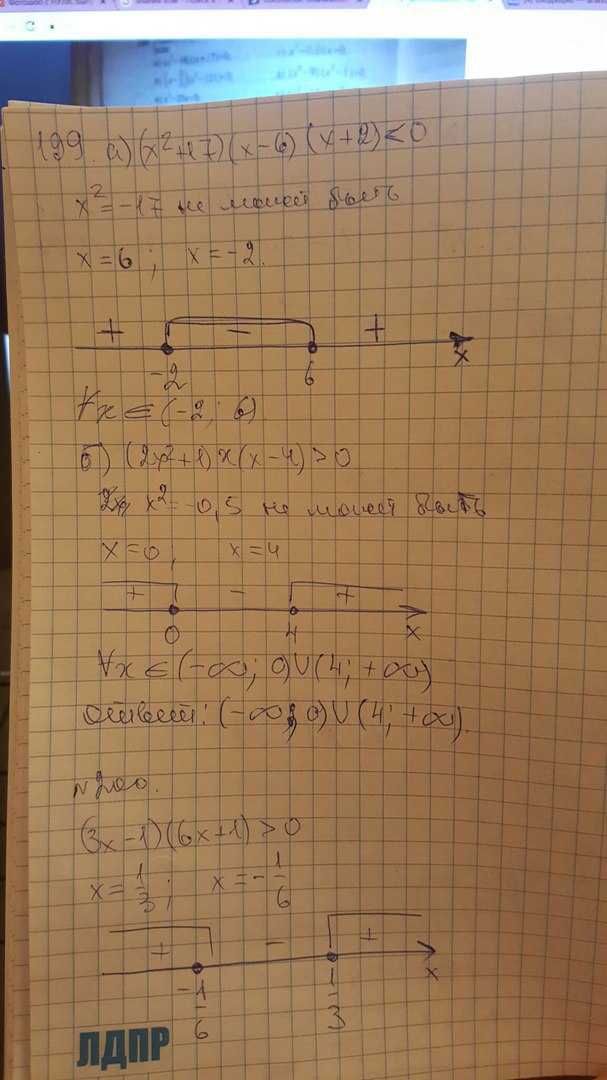 199. а) (x²+17)(x-6)(x+2)<0
x²=-17 не может быть
x=6; x=-2.
+ - +
-2 6 x
∀x∈(-2; 6)
б) (2x²+1)x(x-4)>0
x²=-0,5 не может быть
x=0; x=4
+ - +
0 4 x
∀x∈(-∞; 0)∪(4; +∞)
ответ: (-∞; 0)∪(4; +∞).
№200.
(3x-1)(6x+1)>0
x=1/3; x=-1/6
+ - +
-1/6 1/3 x
ЛДПР